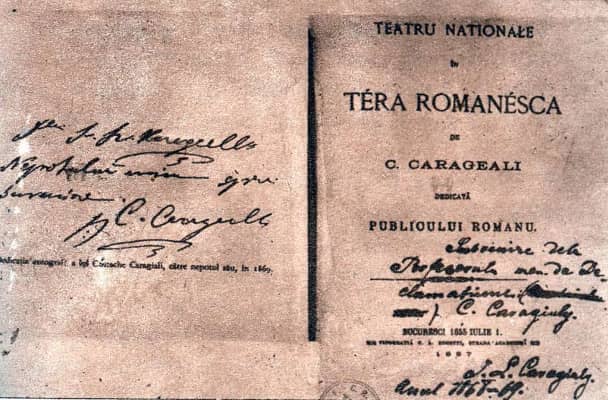 Dlui I. L. Carageally
Nepotului meu spre
suvenire
C. Carageally
Dedicația autografă a lui Costache Caragiali, către nepotul său, in 1869.
TEATRU NATIONALE
în
TÉRA ROMANÉSCA
DE
C. CARAGEALI
DEDICATĂ
PUBLICULUI ROMANU.
Suvenire dela
Profesorulu meu de De
clamațiune
C. Caragialy.
BUCURESCI 1855 IULIE 1.
DIN TIPOGRAFIA C. A. ROSETTI, STRADA ACADEMIEI
1867
I. L. Caragialy.
Anul 1868-69.